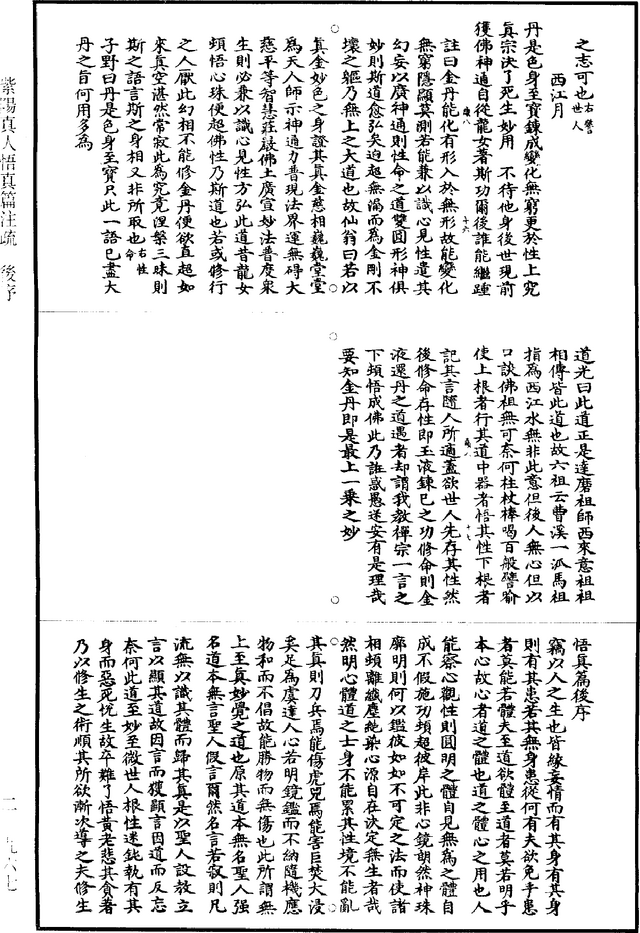 之志可也右警世人
西江月
丹是色身至寶鍊成變化無窮更於性上究
眞宗決了死生妙用　不待他身後世現前
獲佛神通自從龍女著斯功爾後誰能繼踵
註曰金丹能化有形入於無形故能變化
無窮隱顯莫測若能兼以識心見性遣其
幻妄以廣神通則性命之道雙圓形神俱
妙則斯道愈弘矣迫超無漏而爲金剛不
壞之軀乃無上之大道也故仙翁曰若以
眞金妙色之身證其眞金慈相巍巍堂堂
爲天人師示神通力普現法界運無碍大
慈平等智慧莊嚴佛土廣宣妙法普度衆
生則必兼以識心見性方弘此道昔龍女
頓悟心珠便超佛性乃斯道也若或修行
之人厭此幻相不能修金丹便欲直超如
來眞空湛然常寂此爲究竟涅槃三昧則
斯之語言斯之身相又非所取也右性命
子野曰丹是色身至寶只此一語已盡大
丹之旨何用多爲
道光曰此道正是達磨祖師西來意祖祖
相傳皆此道也故六祖云曹溪一派馬祖
指爲西江水無非此意但後人無心但以
口談佛祖無可奈何柱杖棒喝百般譬喻
使上根者行其道中器者悟其性下根者
記其言隨人所適蓋欲世人先存其性然
後修命存性即玉液鍊已之功修命則金
液還丹之道遇者却謂我教禪宗一言之
下頓悟成佛此乃誑惑愚迷安有是理哉
要知金丹即是最上一乘之妙
悟眞篇後序
竊以人之生也皆緣妄情而有其身有其身
則有其患若其無身患從何有夫欲免乎患
者莫能若體夫至道欲體至道者莫若明乎
本心故心者道之體也道之體心之用也人
能察心觀性則圓明之體自見無爲之體自
成不假施功頓超彼岸此非心鏡朗然神珠
廓明則何以鑑彼如如不可定之法而使諸
相頓離纖塵純染心源自在決定無生者哉
然明心體道之士身不能累其性境不能亂
其眞則刀兵焉能傷虎兕焉能害巨焚大浸
奚足爲虞達人心若明鏡鑑而不納隨機應
物和而不倡故能勝物而無傷也此所謂無
上至眞妙覺之道也原其道本無名聖人强
名道本無言聖人假言爾然名言若寂則凡
流無以識其體而歸其眞是以聖人設教立
言以顯其道故因言而獲顯言因道而反忘
奈何此道至妙至微世人根性迷鈍執有其
身而惡死悅生故卒難了悟黃老悲其貪著
乃以修生之術順其所欲漸次導之夫修生
紫陽眞人悟眞篇注疏　後序
二　九六七